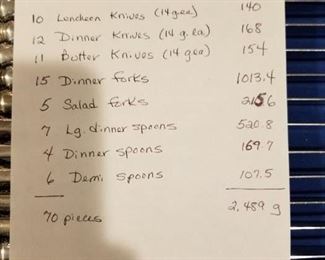 10 Luncheon Knives (14g ea) 140
12 Dinner Knives (14 g. ea) 168
11 Butter Knives (14 g ea) 154
15 Dinner forks 1013.4
5 Salad forks 215.6
7 Lg. dinner spoons 520.8
4 Dinner spoons 169.7
6 Demi spoons 107.5
70 pieces 2,489 g